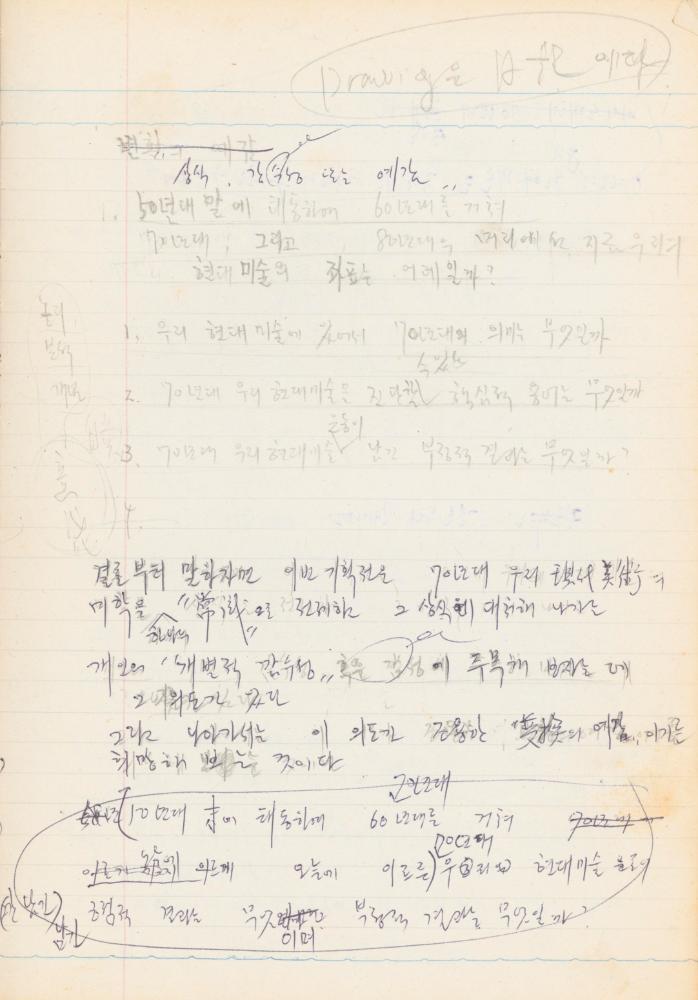 Drawing은
변환의 예감
상식, 감수성 또는 예감"
1. 50년대 말에 태동하여 60년대를 거쳐
70년대, 그리고 80년대의 머리에 선, 지금 우리의
현대미술의 좌표는 어데일까?
논리
분석
개념
1. 우리 현대미술에 있어서 70년대의 의미는 무엇일까
수 있는
2. 70년대 우리 현대미술을 진단할 핵심적 용어는 무엇일까
운동이
3. 70년대 우리 현대미술 남긴 부정적 결과는 무엇일까?
4.
결론부터 말하자면 이번 기획전은 70년대 우리 現代美術의
미학을 "常識"으로 전제하고 그 상식에 대처해 나가는
하나의
개인의 "개별적 감수성" 혹은 감성에 주목해 보자는 데
그 의도가 있다
그리고 나아가서는 이 의도가 조용한 變換의 예감, 이기를
희망해 보는 것이다
70년대
50년대 末에 태동하여 60년대를 거쳐 70년대
70년대
오늘에 이르른) 우리의 현대미술 운동이
남긴
긍정적 결과는 무엇이며 부정적 결과는 무엇일까?